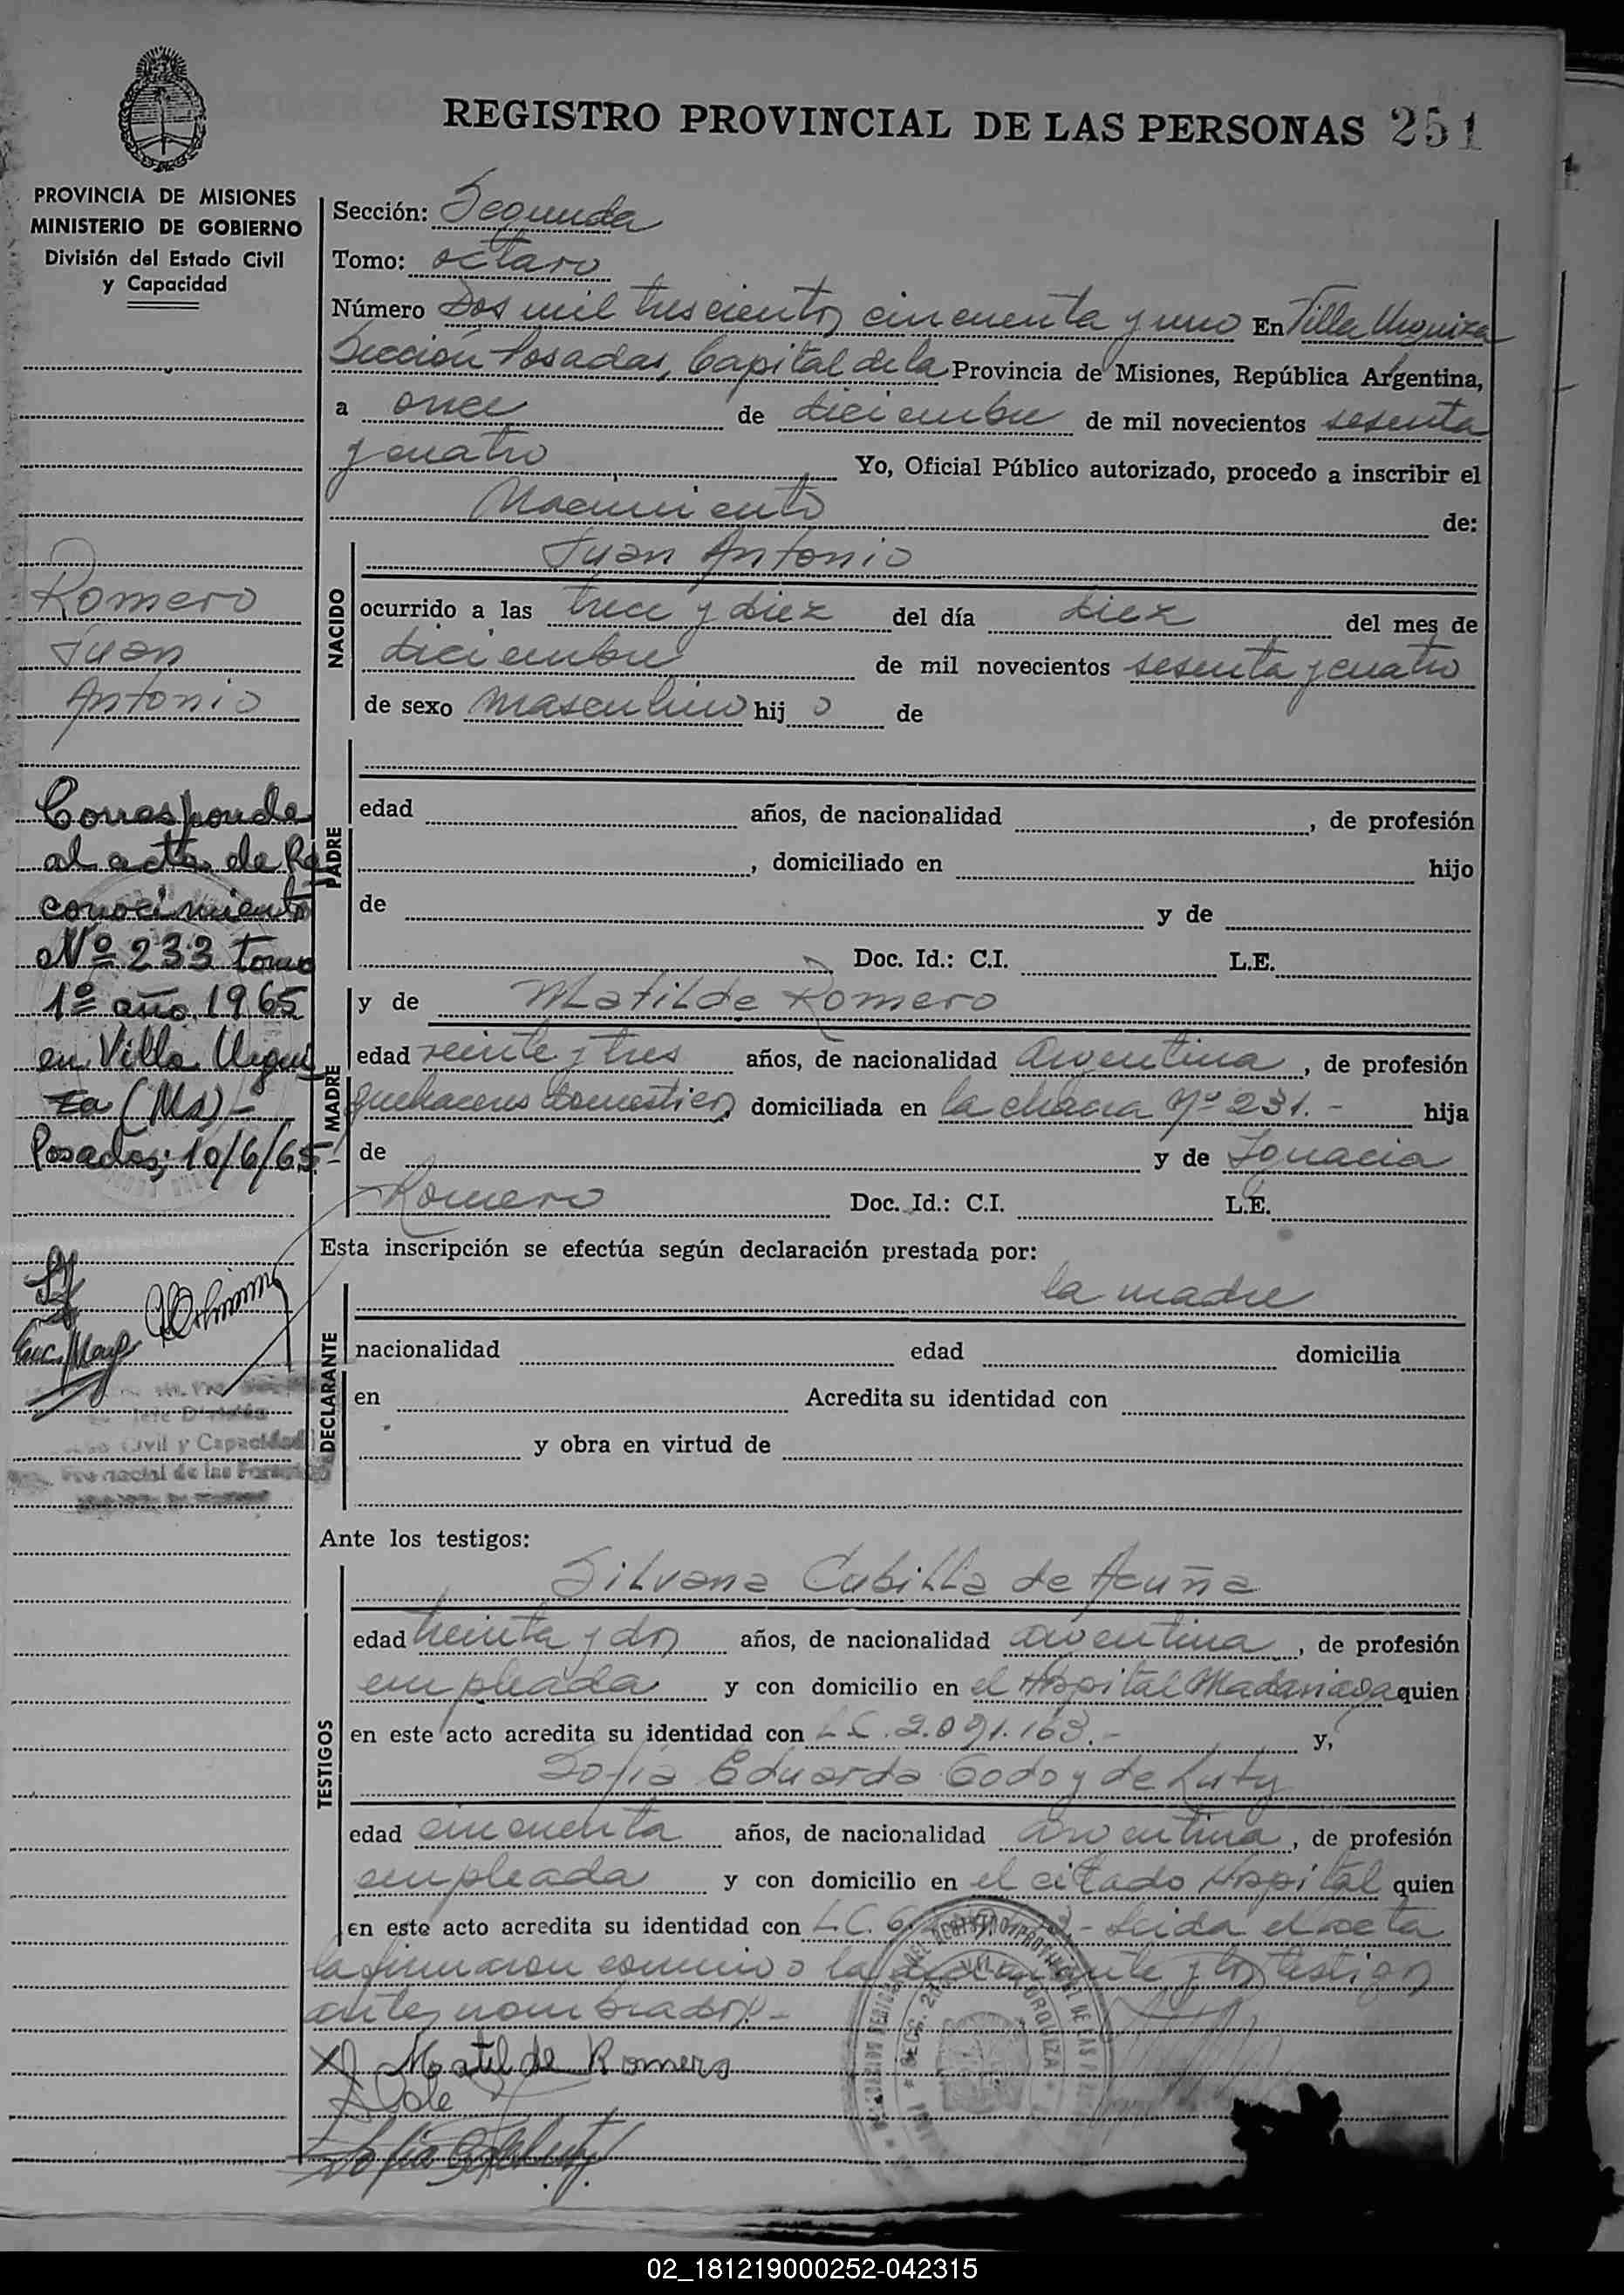 REGISTRO PROVINCIAL DE LAS PERSONAS 251
PROVINCIA DE MISIONES
MINISTERIO DE GOBIERNO
División del Estado Civil
y Capacidad
Romero
Juan
Antonio
Corresponde
al acta de Re
conocimiento
Nº 233 tomo
1º año 1965
en Villa Urqui
za (Ms)-
Posadas; 10/6/65-
Jefe División
Civil y Capacidad
Provincial de las Personas
Sección: Segunda
Tomo: octavo
Número Dos mil trescientos cincuenta y uno En Villa Urquiza
Sección Posadas, Capital de la Provincia de Misiones, República Argentina,
a once de diciembre de mil novecientos sesenta
y cuatro Yo, Oficial Público autorizado, procedo a inscribir el
Nacimiento de:
NACIDO
Juan Antonio
ocurrido a las trece y diez del día diez del mes de
diciembre de mil novecientos sesenta y cuatro
de sexo masculino hij o de
PADRE
edad años, de nacionalidad , de profesión
, domiciliado en hijo
de y de
Doc. Id.: C.I. L.E.
MADRE
y de Matilde Romero
edad veinte y tres años, de nacionalidad argentina, de profesión
quehaceres domesticos domiciliada en la chacra Nº 231.- hija
de y de Ignacia
Romero Doc. Id.: C.I. L.E.
Esta inscripción se efectúa según declaración prestada por:
DECLARANTE
la madre
nacionalidad edad domicilia
en Acredita su identidad con
y obra en virtud de
Ante los testigos:
TESTIGOS
Silvana Cubilla de Acuña
edad treinta y dos años, de nacionalidad argentina, de profesión
empleada y con domicilio en el Hospital Madariaga quien
en este acto acredita su identidad con L.C. 2.091.163.- y,
Sofia Eduarda Godoy de Luty
edad cincuenta años, de nacionalidad argentina, de profesión
empleada y con domicilio en el citado Hospital quien
en este acto acredita su identidad con L.C. 6. - Leida el acta
la firmaron conmigo la declarante y los testigos
antes nombrados.-
Matilde Romero
02_181219000252-042315